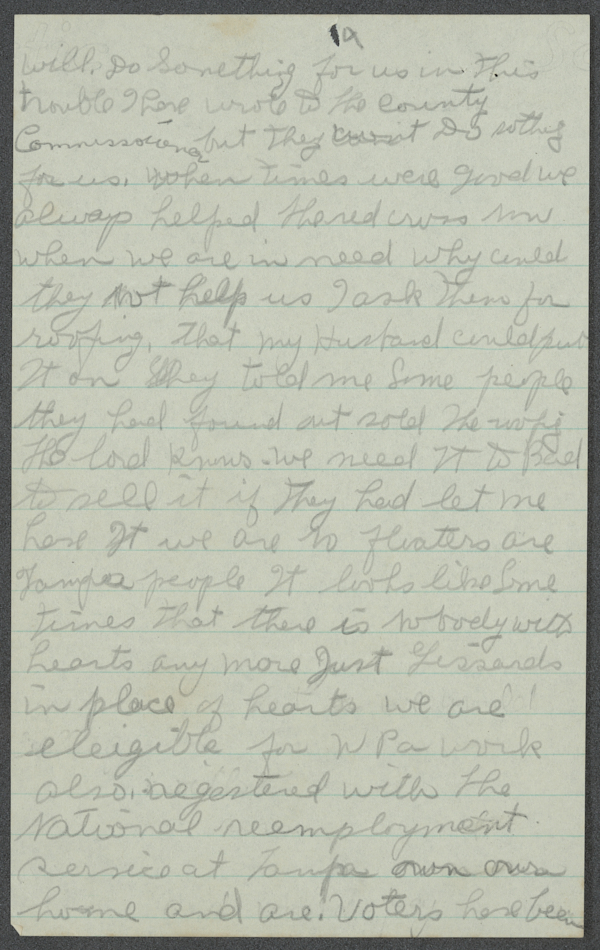 19
will. Do Something for us in this
trouble I have wrote to the County
Commissioiena but they don't do sothing
for us. when times were good we
always helped the red cross now
when we are in need why could
they Not help us I ask them for
roofing. that my Husband could put
It on They told me Some people
they had found out sold the roofig
the lord knows we need It to Bad
to sell it if they had let me
have It we are no floaters are
Tampa people It looks like Some
times that there is nobody with
hearts any more Just Gissards
in place of hearts we are
eleigible for W Pa work
also. regestered with the
National reemployment
service at Tampa own our
home and are. Voters have been